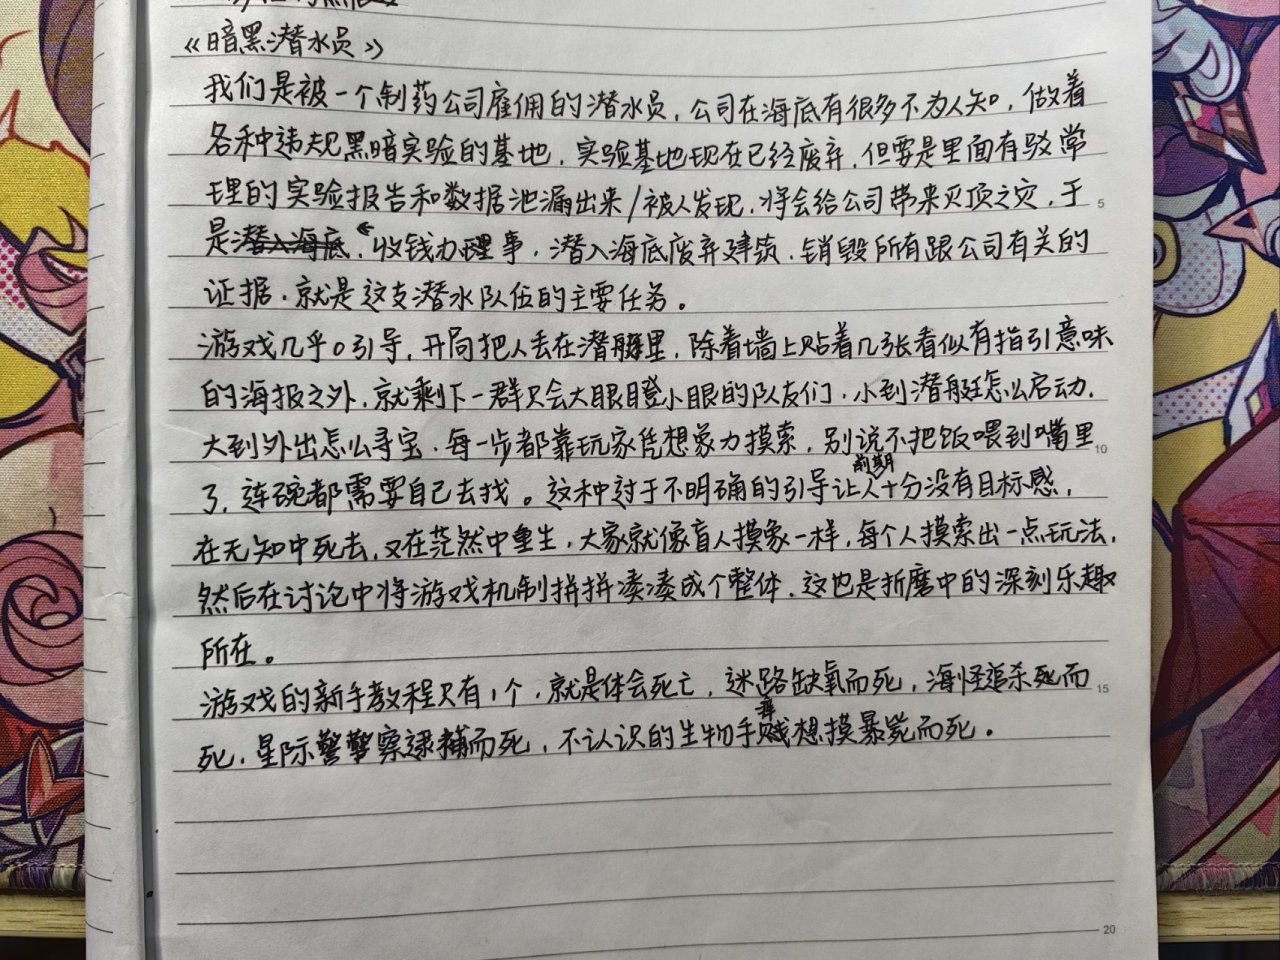 《暗黑潜水员》
我们是被一个制药公司雇佣的潜水员，公司在海底有很多不为人知，做着
各种违规黑暗实验的基地，实验基地现在已经废弃，但要是里面有驳常
理的实验报告和数据池漏出来/被人发现，将会给公司带来灭顶之灾，于
是潜入海底，收钱办理事，潜入海底废弃建筑，销毁所有跟公司有关的
证据，就是这支潜水队伍的主要任务。
游戏几乎0引导，开局把人丢在潜艇里，除着墙上贴着几张看似有指引意味
的海报之外，就剩下一群只会大眼瞪小眼的队友们，小到潜艇怎么启动，
大到外出怎么寻宝，每一步都靠玩家凭想象力摸索，别说不把饭喂到嘴里
了，连碗都需要自己去找。这种过于不明确的引导让人前期十分没有目标感，
在无知中死去，又在茫然中重生，大家就像盲人摸象一样，每个人摸索出一点玩法，
然后在讨论中将游戏机制拼拼凑凑成个整体，这也是折磨中的深刻乐趣
所在。
游戏的新手教程只有1个，就是体会死亡，迷路缺氧而死，海怪追杀死而
死，星际警察逮捕而死，不认识的生物手贱想摸暴毙而死。
5
10
15
20